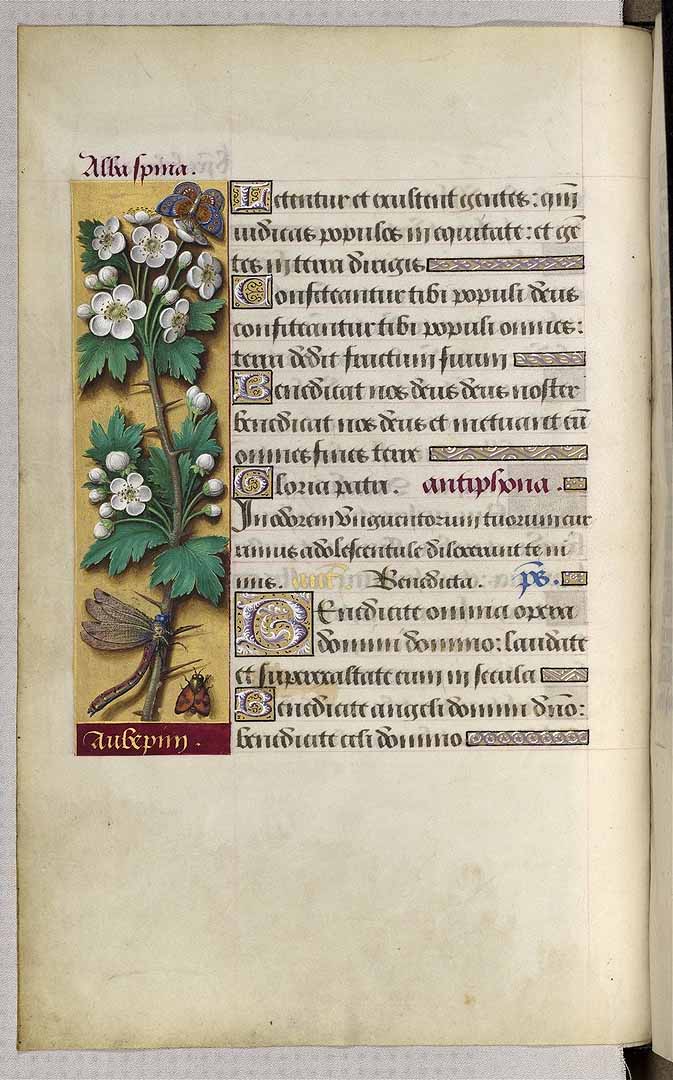 Alba spina.
Letentur et exultent gentes: qm̄
iudicas populos in equitate: et gē
tes in terra dirigis
Confiteantur tibi populi deus
confiteantur tibi populi omnes:
terra dedit fructum suum
Benedicat nos deus deus noster
benedicat nos deus et metuant eū
omnes fines terre
Gloria patri. antiphona.
In odorem vnguentorum tuorum cur
rimus adolescentule dilexerunt te ni
mis. Benedicta. ps̄.
Benedicite omnia opera
domini domino: laudate
et superexaltate eum in secula
Benedicite angeli domini dño:
benedicite celi domino
Aubepin.